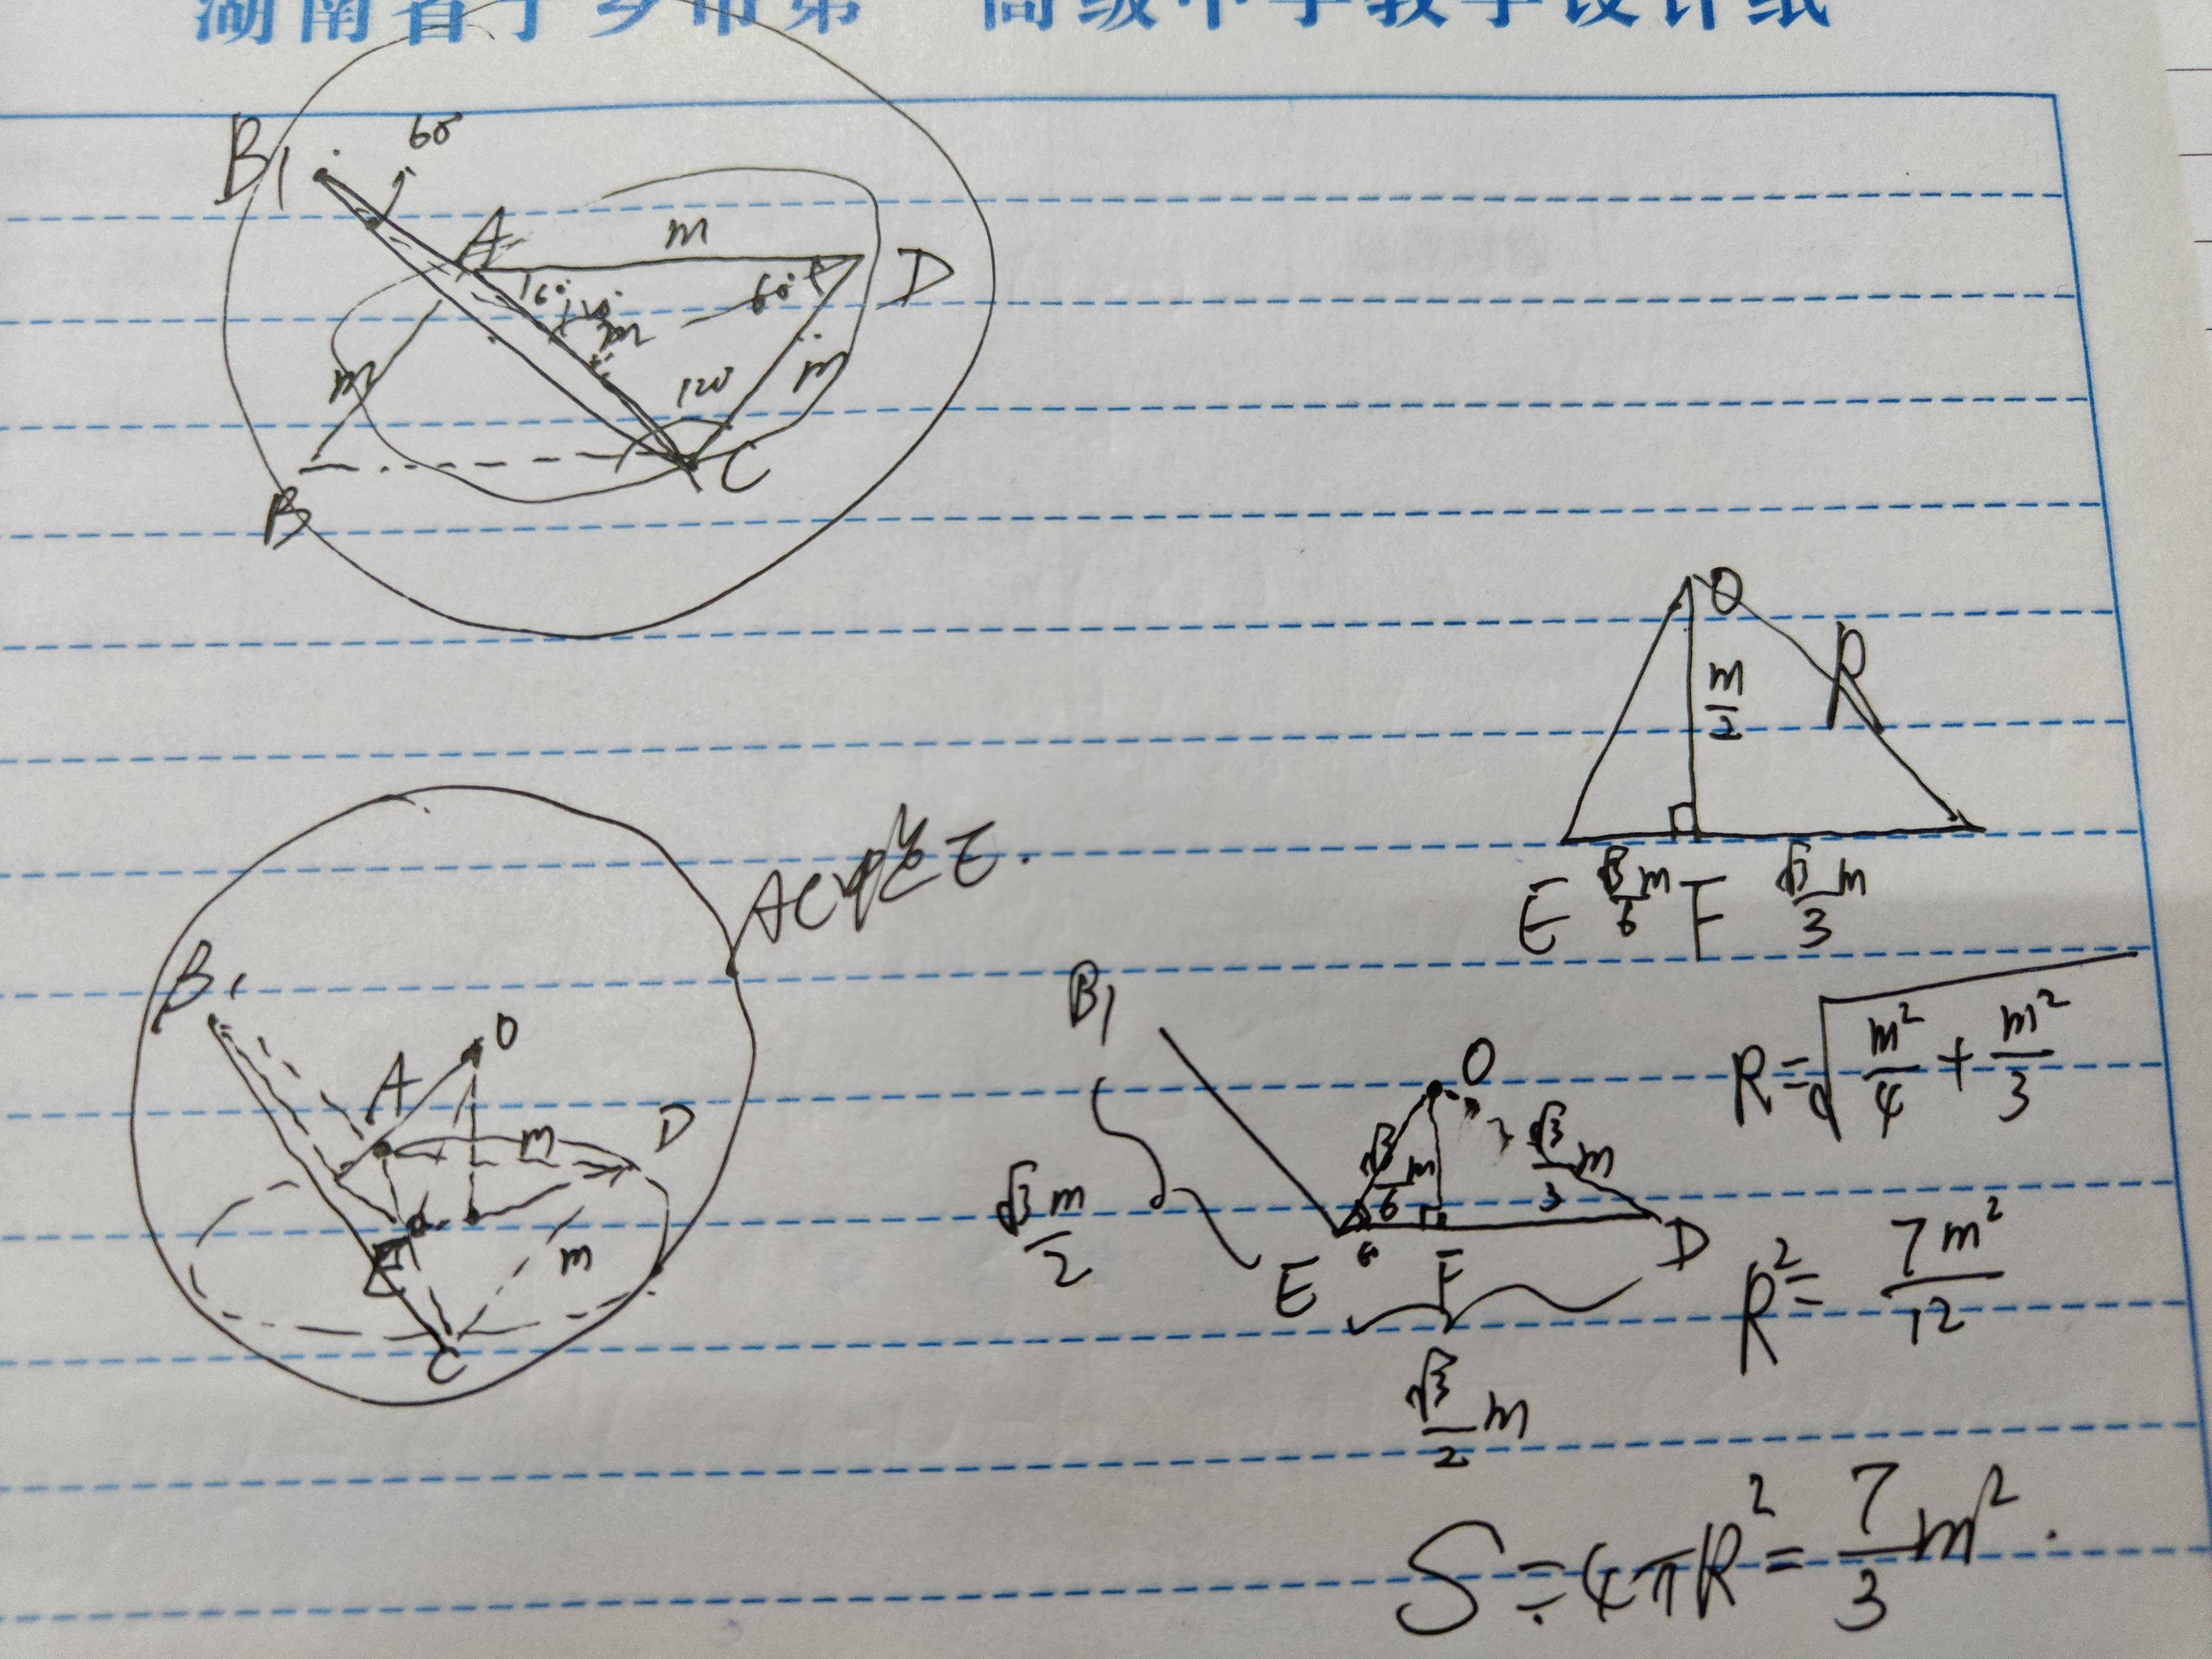 湖南省宁乡市第一高级中学教学设计纸
B₁
60°
A
m
D
60°
60°
120°
m
m
m
120°
C
B
O
m/2
R
E
√3/6 m
F
√3/3 m
AC中点E.
B₁
O
A
m
D
E
m
C
B₁
O
√3/6 m
√3/3 m
√3 m/2
E
F
D
√3/2 m
R=√(m²/4+m²/3)
R²=7m²/12
S=4πR²=7/3 m².